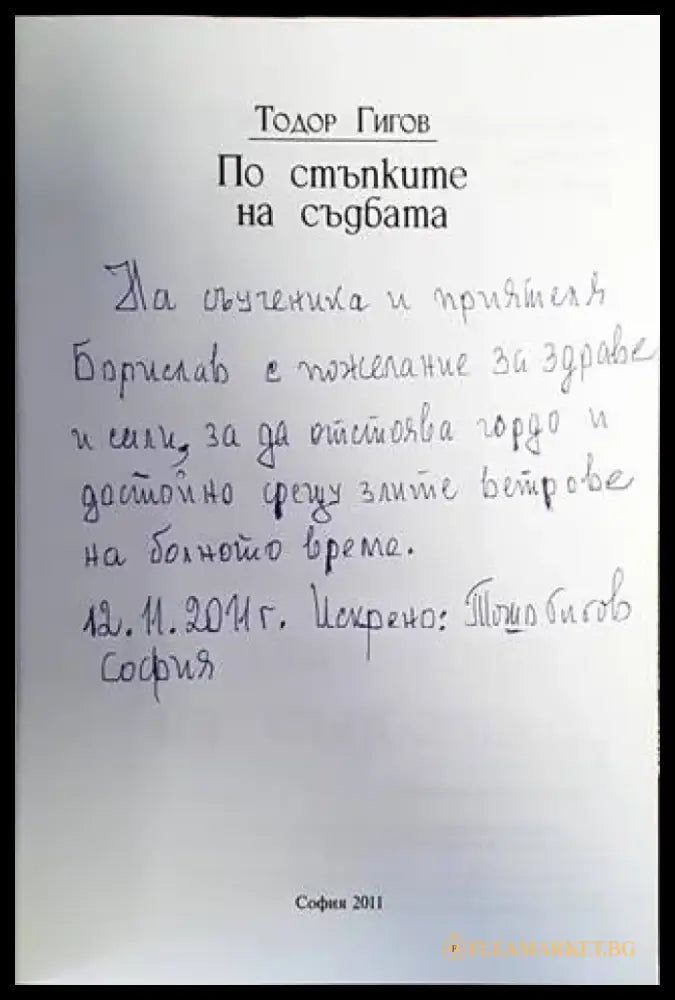 Тодор Гигов
По стъпките
на съдбата
На съученика и приятеля
Борислав с пожелание за здраве
и сили, за да отстоява гордо и
достойно срещу злите ветрове
на болното време.
12.11.2011г. Искрено: Тошо Гигов
София
София 2011
FLEAMARKET.BG